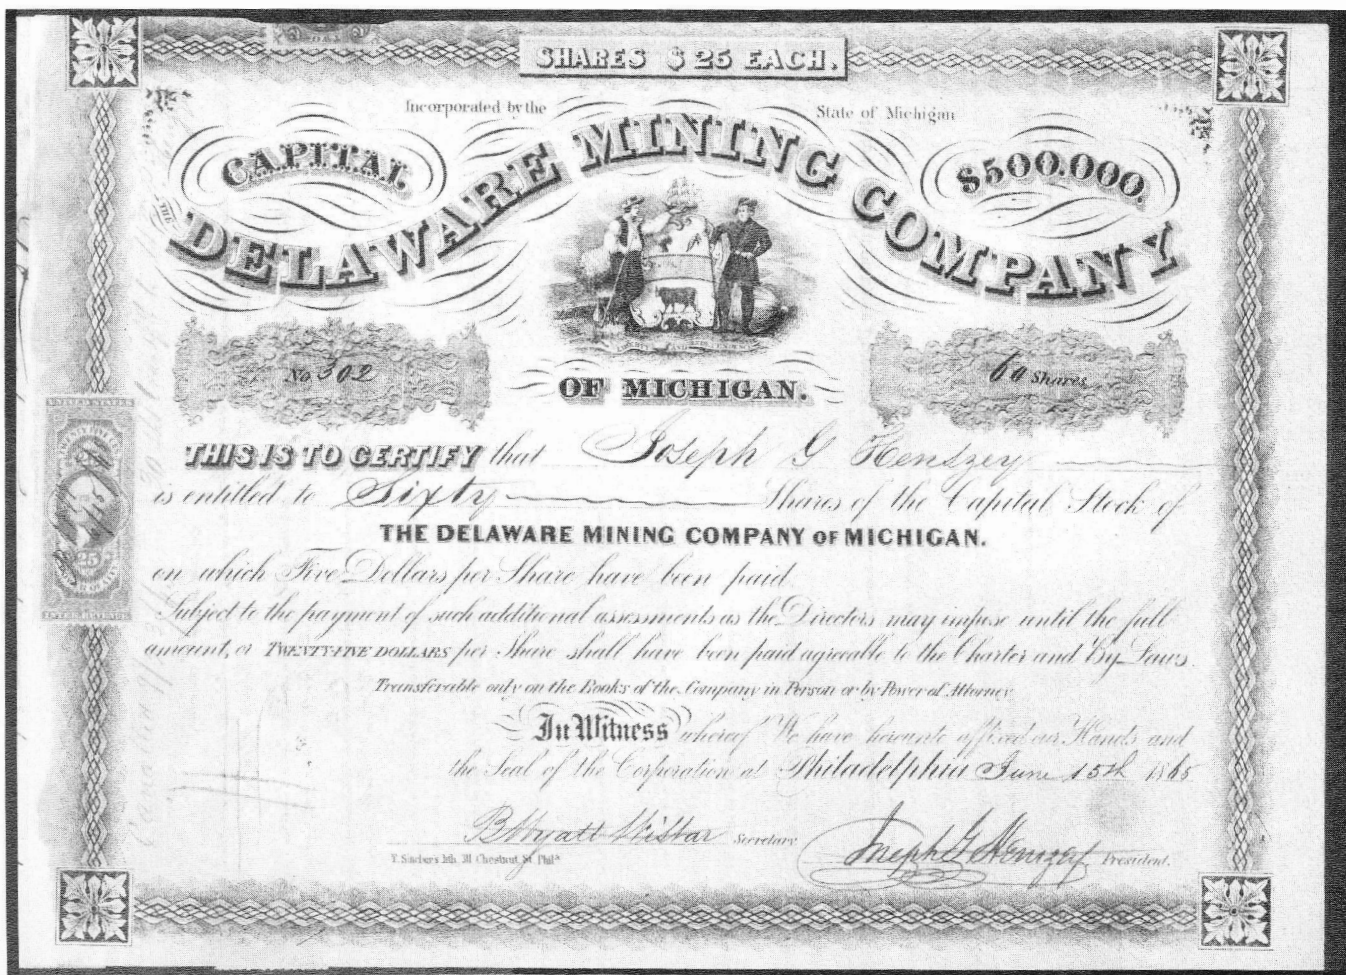 SHARES $25 EACH.
Incorporated by the State of Michigan
CAPITAL $500.000.
THE DELAWARE MINING COMPANY
OF MICHIGAN.
No 302
60 Shares
UNITED STATES
25
INTER. REVENUE
THIS IS TO CERTIFY that Joseph G Henszey
is entitled to Sixty Shares of the Capital Stock of
THE DELAWARE MINING COMPANY OF MICHIGAN.
on which Five Dollars per Share have been paid
Subject to the payment of such additional assessments as the Directors may impose until the full
amount, or TWENTY-FIVE DOLLARS per Share shall have been paid agreeable to the Charter and By-Laws.
Transferable only on the Books of the Company in Person or by Power of Attorney
In Witness whereof We have hereunto affixed our Hands and
the Seal of the Corporation at Philadelphia June 15th 1865
B Hyatt Wistar Secretary
Joseph G Henszey President.
Lith. Chestnut St. Phila